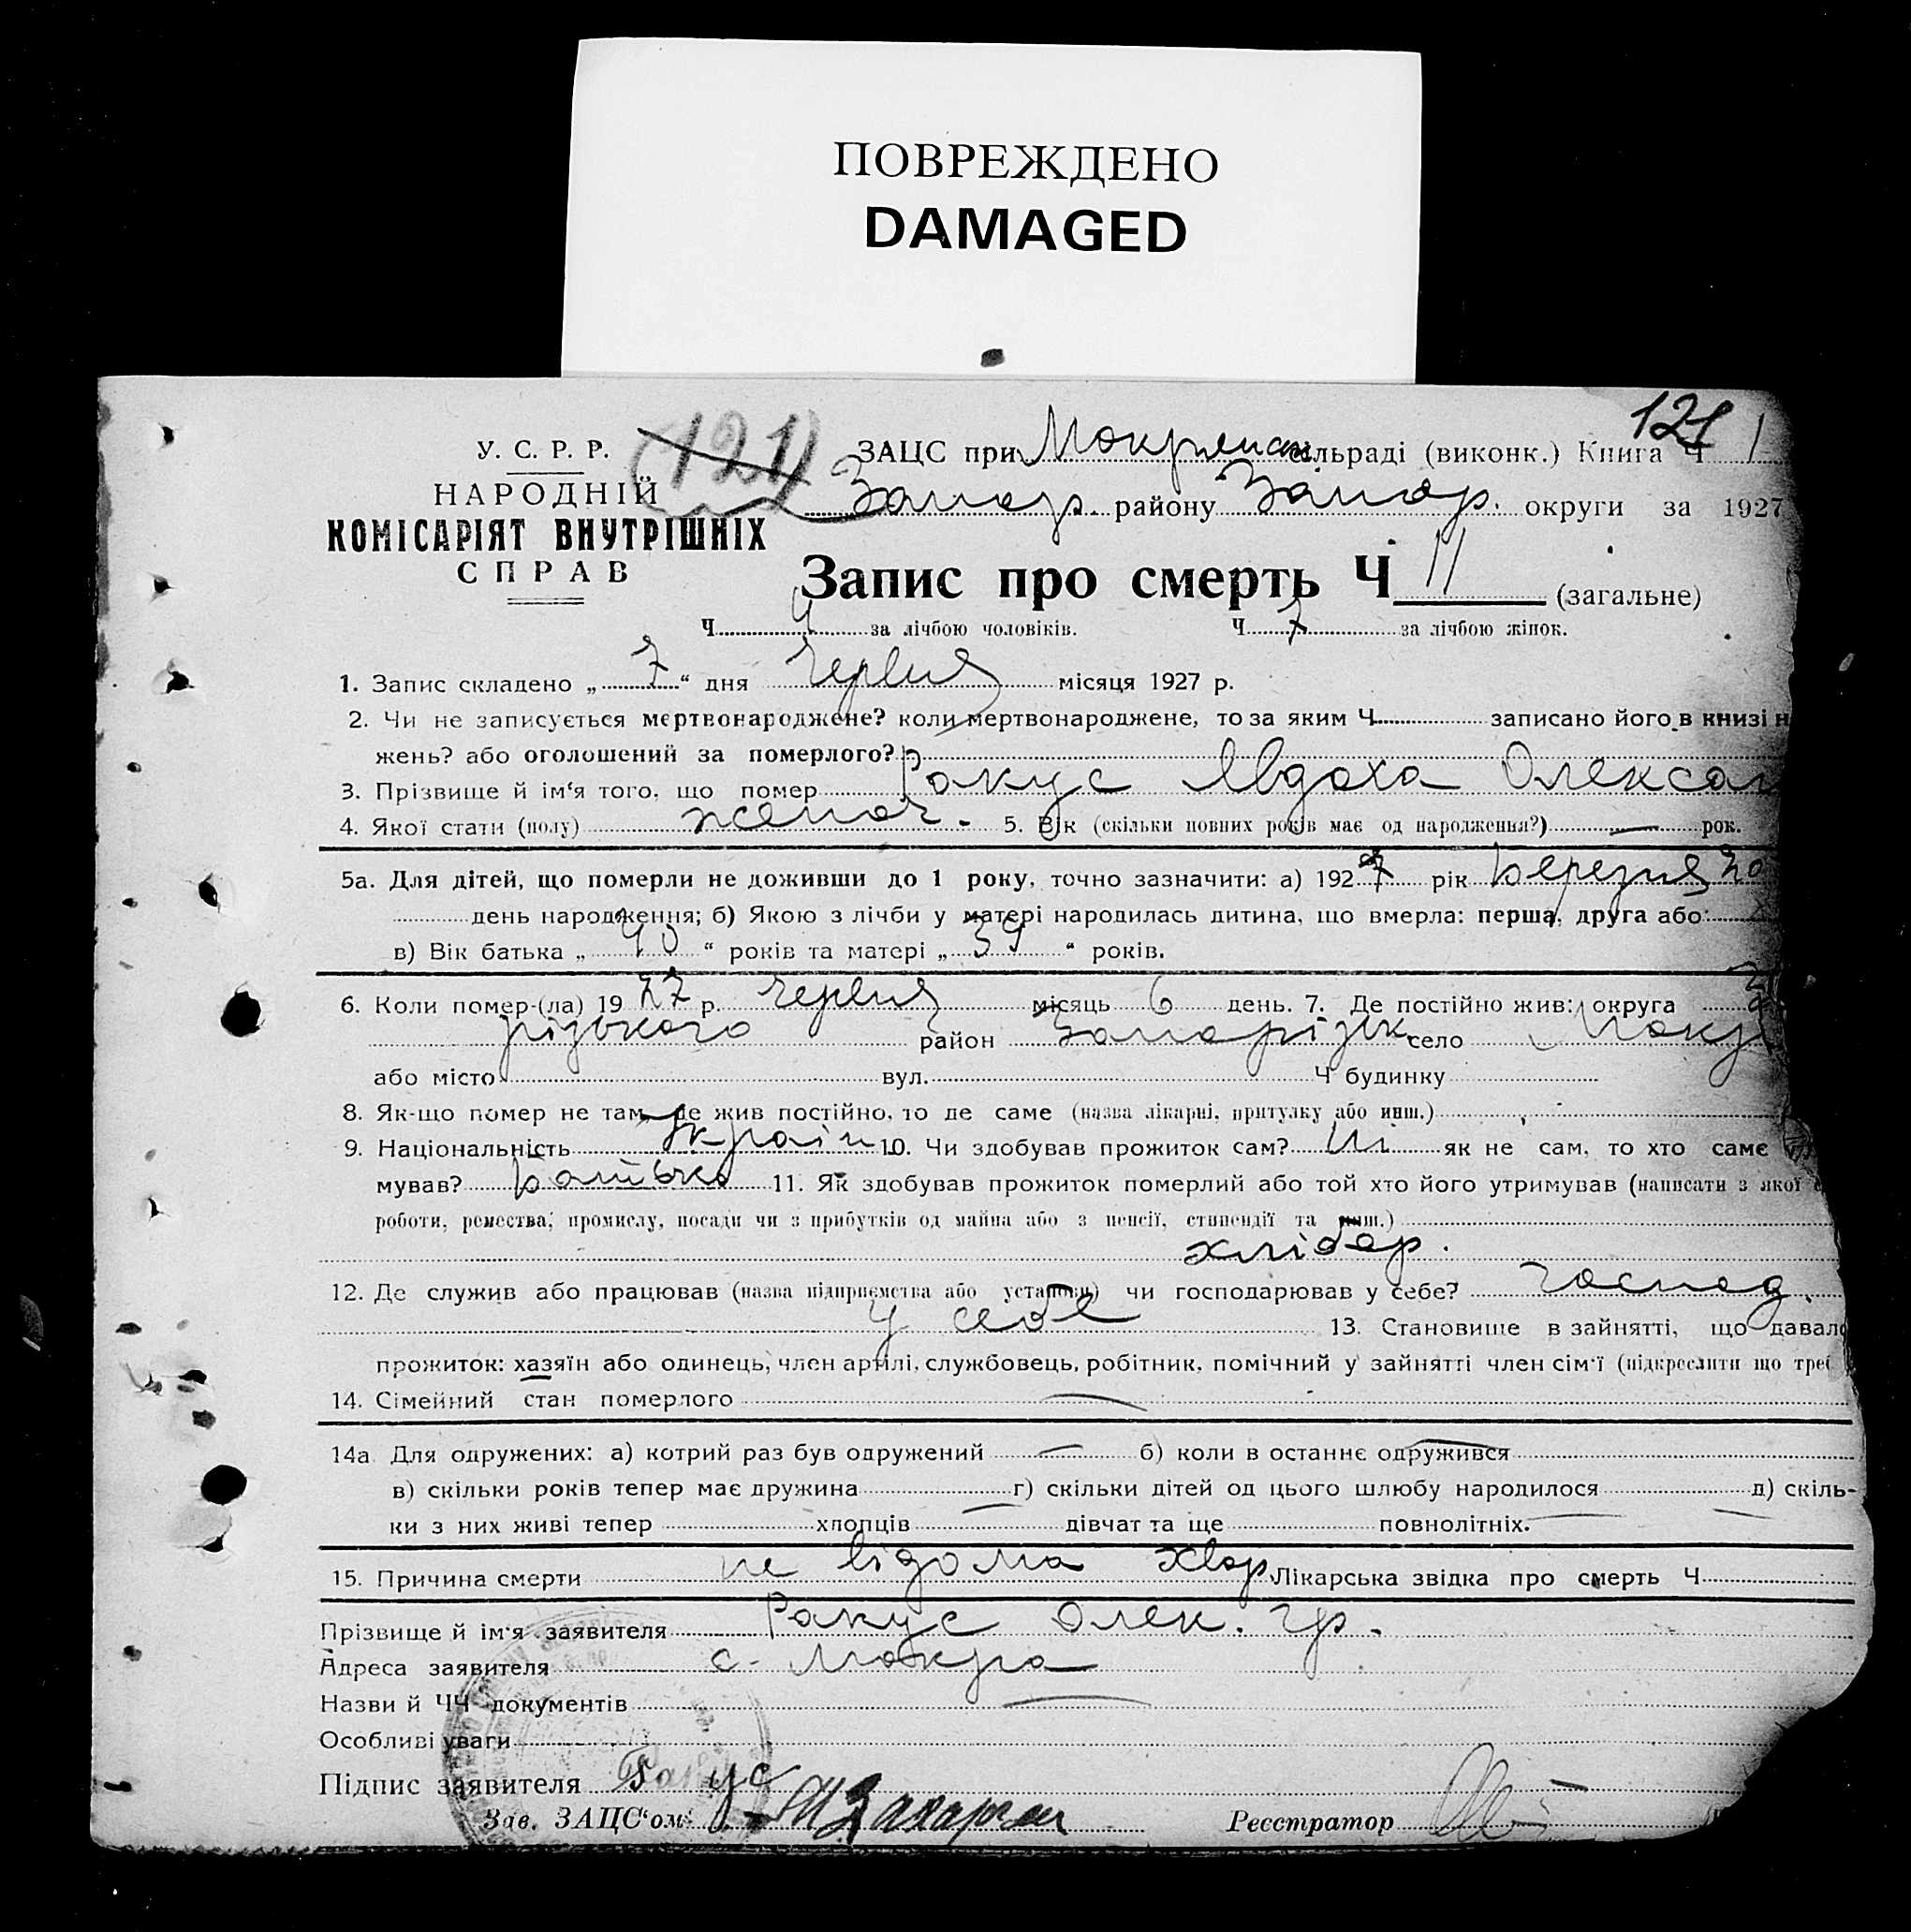 ПОВРЕЖДЕНО
DAMAGED
121
У. С. Р. Р. (121) ЗАЦС при сільраді (виконк.) Книга Ч 1
НАРОДНІЙ Запор. району Запор. округи за 1927
КОМІСАРІЯТ ВНУТРІШНІХ
СПРАВ
Запис про смерть Ч 11 (загальне)
Ч 4 за лічбою чоловіків. Ч 7 за лічбою жінок.
1. Запис складено „ 7 “ дня Червня місяця 1927 р.
2. Чи не записується мертвонароджене? коли мертвонароджене, то за яким Ч. записано його в книзі н
жень? або оголошений за померлого?
3. Прізвище й ім‘я того, що помер Ракус Явдоха Олексан
4. Якої стати (полу) женоч. 5. Вік (скільки повних років має од народження?) — рок.
5а. Для дітей, що померли не доживши до 1 року, точно зазначити: а) 1927 рік Березня 20
день народження; б) Якою з лічби у матері народилась дитина, що вмерла: перша, друга або
в) Вік батька „ 40 “ років та матері „ 39 “ років.
6. Коли помер-(ла) 19 27 р. Червня місяць 6 день. 7. Де постійно жив: округа
різького район Запорізьк село Мокр
або місто вул. Ч будинку
8. Як-що помер не там, де жив постійно, то де саме (назва лікарні, притулку або инш.)
9. Національність Україн 10. Чи здобував прожиток сам? Ні як не сам, то хто саме
мував? Батько 11. Як здобував прожиток померлий або той хто його утримував (написати з якої
роботи, ремества, промислу, посади чи з прибутків од майна або з пенсії, стипендії та инш.)
хлібор.
12. Де служив або працював (назва підприємства або установи) чи господарював у себе? Господ.
у себе 13. Становище в зайнятті, що давало
прожиток: хазяїн або одинець, член артілі, службовець, робітник, помічний у зайнятті член сім‘ї (підкреслити що треб
14. Сімейний стан померлого —
14а Для одружених: а) котрий раз був одружений — б) коли в останнє одружився —
в) скільки років тепер має дружина г) скільки дітей од цього шлюбу народилося д) скіль-
ки з них живі тепер хлопців дівчат та ще повнолітніх.
15. Причина смерти не відома хвор. Лікарська звідка про смерть Ч
Прізвище й ім‘я заявителя Ракус Олек. Гр.
Адреса заявителя с. Мокра
Назви й ЧЧ документів —
Особливі уваги
Підпис заявителя Ракус
Зав. ЗАЦС‘ом Реєстратор